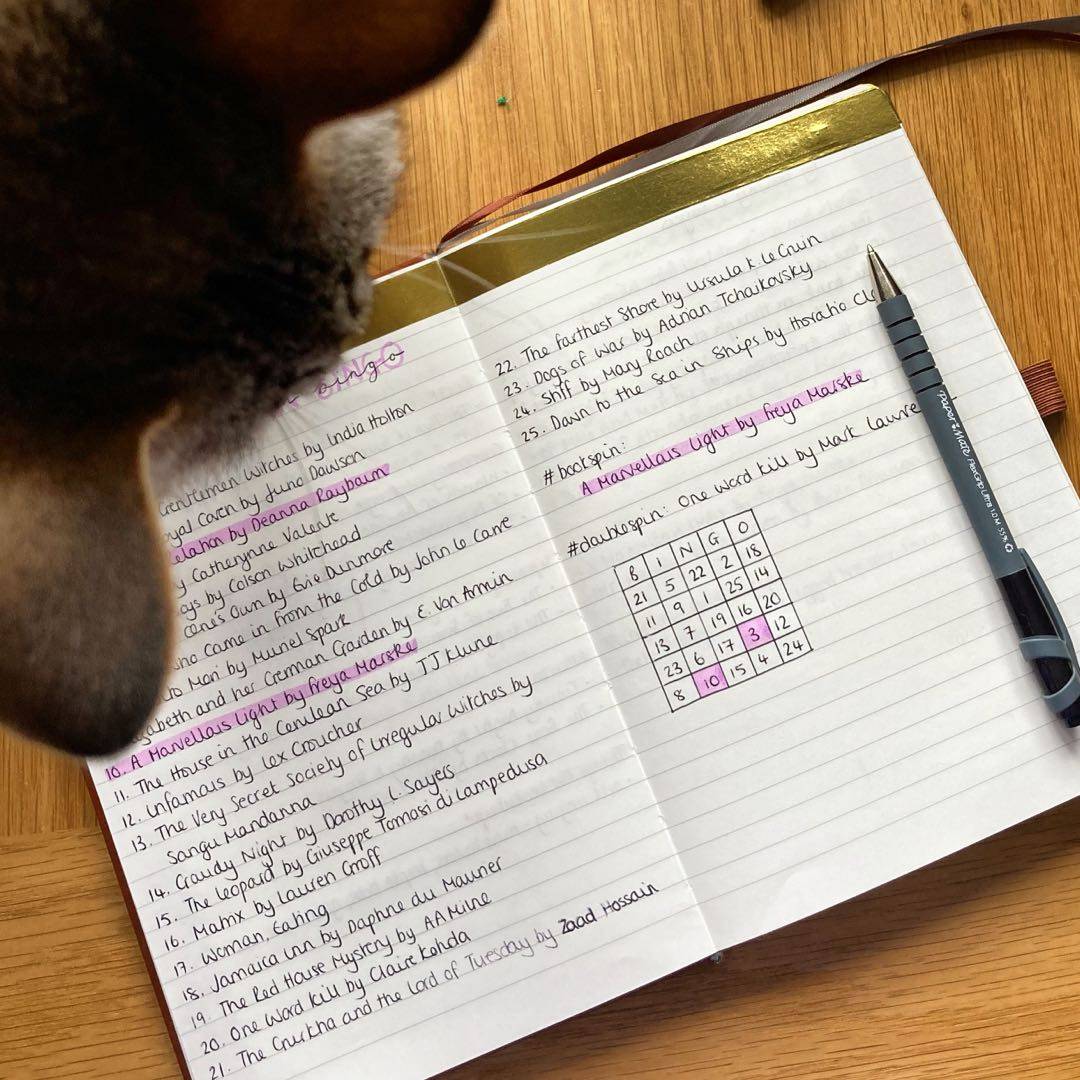 BINGO
bingo
Gentlemen Witches by India Holton
Royal Coven by Juno Dawson
elation by Deanna Raybourn
by Catherynne Valente
ays by Colson Whitehead
One's Own by Evie Dunmore
who Came in From the Cold by John le Carré
to Mori by Muriel Spark
Elizabeth and her German Garden by E. Von Arnim
10. A Marvellous Light by Freya Marske
11. The House in the Cerulean Sea by TJ Klune
12. Infamous by Lex Croucher
13. The Very Secret Society of Irregular Witches by
Sangu Mandanna
14. Gaudy Night by Dorothy L. Sayers
15. The Leopard by Giuseppe Tomasi di Lampedusa
16. Matrix by Lauren Groff
17. Woman, Eating
18. Jamaica Inn by Daphne du Maurier
19. The Red House Mystery by AA Milne
20. One Word Kill by Claire Kohda
21. The Gurkha and the Lord of Tuesday by Zaad Hossain
22. The Farthest Shore by Ursula K. le Guin
23. Dogs of War by Adrian Tchaikovsky
24. Stiff by Mary Roach
25. Down to the Sea in Ships by Horatio Cl
#bookspin:
A Marvellous Light by Freya Marske
#doublespin: One Word Kill by Mark Lawre
B I N G O
21 5 22 2 18
11 9 1 25 14
13 7 19 16 20
23 6 17 3 12
8 10 15 4 24
Paper Mate FlexGrip Ultra 1.0M